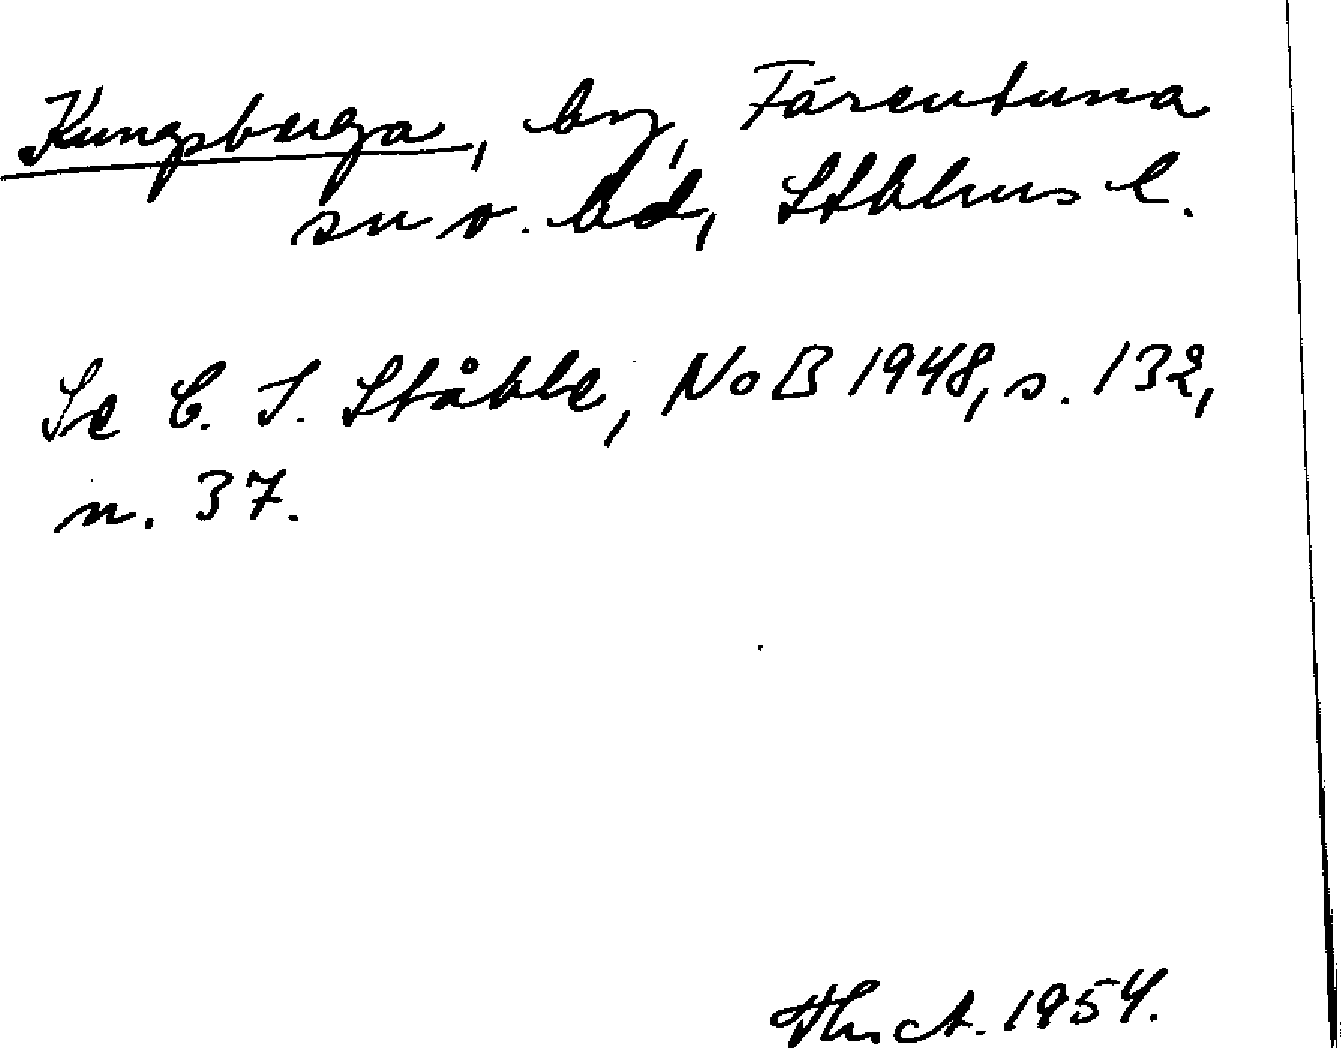 Kungsberga, by, Färentuna
sn o. hd, Sthlms l.
Se C. I. Ståhle, NoB 1948, s. 132,
n. 37.
ct. 1954.